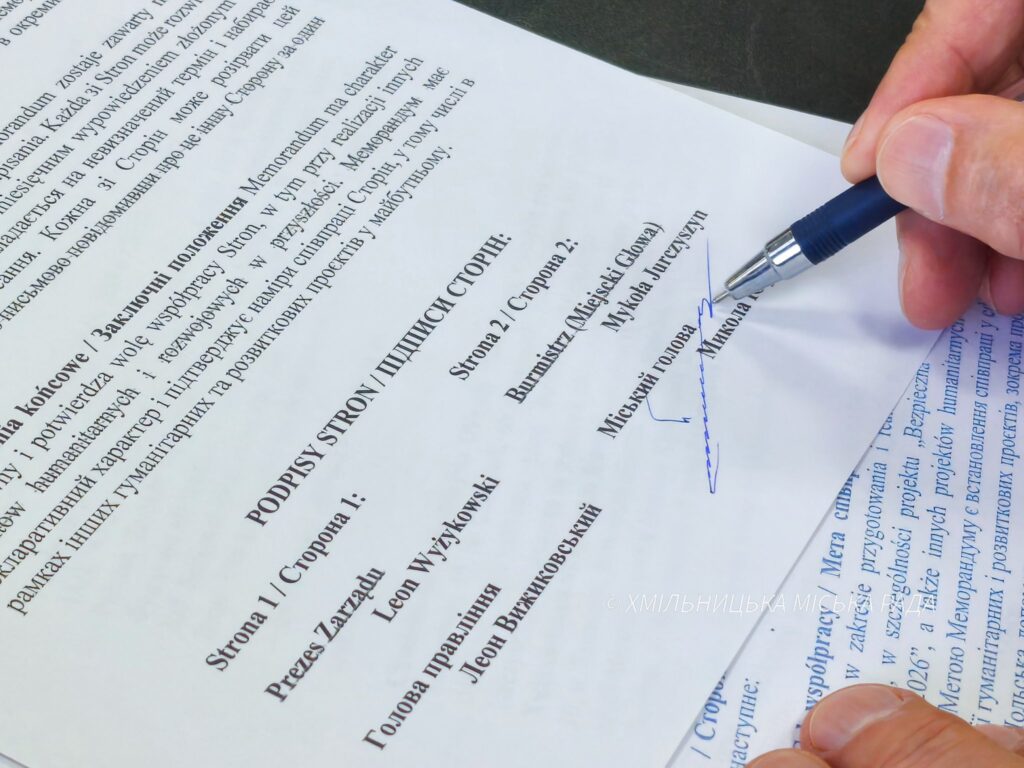 w okremi
morandum zostaje zawarty
pisania. Każda ze Stron może rozwi
miesięcznym wypowiedzeniem złożonym
ладається на невизначений термін і набирає
ання. Кожна зі Сторін може розірвати цей
письмово повідомивши про це іншу Сторону за один
nia końcowe / Заключні положення Memorandum ma charakter
ny i potwierdza wolę współpracy Stron, w tym przy realizacji innych
ów humanitarnych i rozwojowych w przyszłości. Меморандум має
кларативний характер і підтверджує наміри співпраці Сторін, у тому числі в
рамках інших гуманітарних та розвиткових проєктів у майбутньому.
PODPISY STRON / ПІДПИСИ СТОРІН:
Strona 1 / Сторона 1:
Prezes Zarządu
Leon Wyżykowski
Голова правління
Леон Вижиковський
Strona 2 / Сторона 2:
Burmistrz (Miejski Głowa)
Mykoła Jurczyszyn
Міський голова
Микола
© ХМІЛЬНИЦЬКА МІСЬКА РАДА
/ Сторо
наступне:
współpracy Мета спів
w zakresie przygotowania i rea
w szczególności projektu „Bezpieczna
026”, a także innych projektów humanitarnych
Метою Меморандуму є встановлення співпраці у с
гуманітарних і розвиткових проєктів, зокрема про